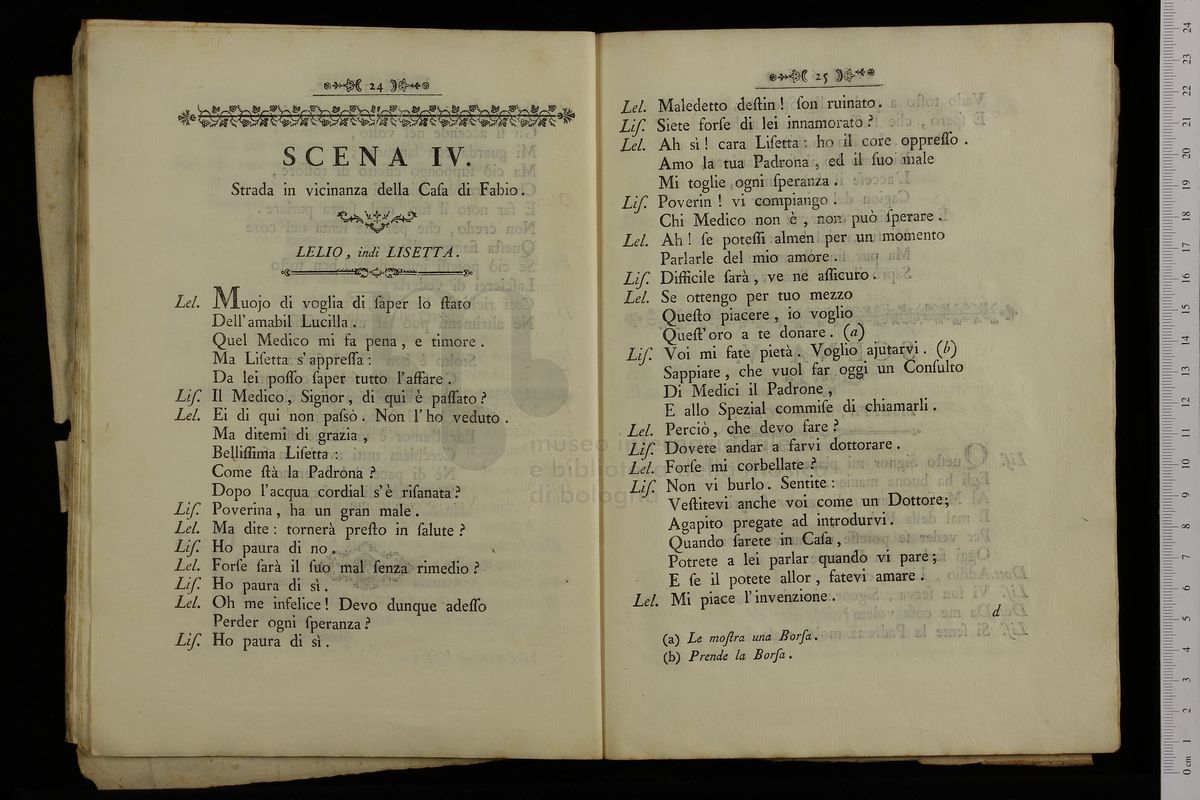 24
SCENA IV.
Strada in vicinanza della Caſa di Fabio.
LELIO, indi LISETTA.
Lel. Muojo di voglia di ſaper lo ſtato
Dell'amabil Lucilla.
Quel Medico mi fa pena, e timore.
Ma Liſetta s'appreſſa:
Da lei poſſo ſaper tutto l'affare.
Liſ. Il Medico, Signor, di qui è paſſato?
Lel. Ei di qui non paſsò. Non l'ho veduto.
Ma ditemi di grazia,
Belliſſima Liſetta:
Come ſtà la Padrona?
Dopo l'acqua cordial s'è riſanata?
Liſ. Poverina, ha un gran male.
Lel. Ma dite: tornerà preſto in ſalute?
Liſ. Ho paura di no.
Lel. Forſe ſarà il ſuo mal ſenza rimedio?
Liſ. Ho paura di sì.
Lel. Oh me infelice! Devo dunque adeſſo
Perder ogni ſperanza?
Liſ. Ho paura di sì.
25
Lel. Maledetto deſtin! ſon ruinato.
Liſ. Siete forſe di lei innamorato?
Lel. Ah sì! cara Liſetta: ho il core oppreſſo.
Amo la tua Padrona, ed il ſuo male
Mi toglie ogni ſperanza.
Liſ. Poverin! vi compiango.
Chi Medico non è, non può ſperare.
Lel. Ah! ſe poteſſi almen per un momento
Parlarle del mio amore.
Liſ. Difficile ſarà, ve ne aſſicuro.
Lel. Se ottengo per tuo mezzo
Queſto piacere, io voglio
Queſt'oro a te donare. (a)
Liſ. Voi mi fate pietà. Voglio ajutarvi. (b)
Sappiate, che vuol far oggi un Conſulto
Di Medici il Padrone,
E allo Spezial commiſe di chiamarli.
Lel. Perciò, che devo fare?
Liſ. Dovete andar a farvi dottorare.
Lel. Forſe mi corbellate?
Liſ. Non vi burlo. Sentite:
Veſtitevi anche voi come un Dottore;
Agapito pregate ad introdurvi.
Quando ſarete in Caſa,
Potrete a lei parlar quando vi pare;
E ſe il potete allor, fatevi amare.
Lel. Mi piace l'invenzione.
d
(a) Le moſtra una Borſa.
(b) Prende la Borſa.